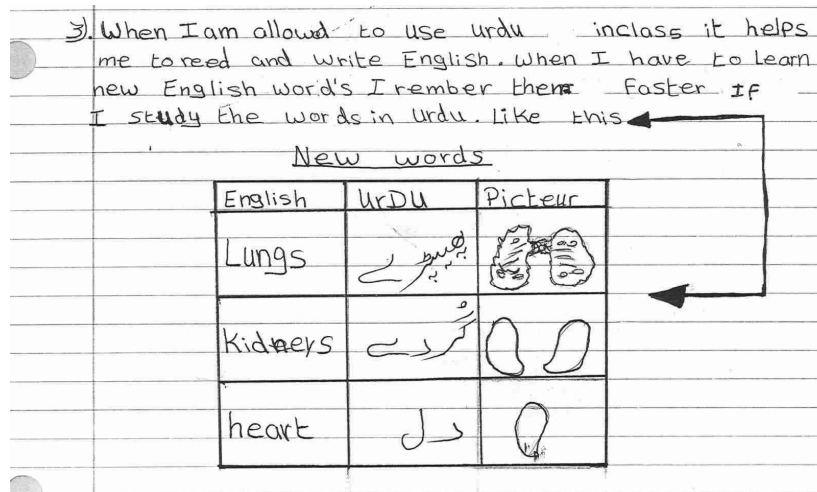 3). When I am allowd to use urdu inclass it helps
me to reed and write English. When I have to Learn
new English word's I rember them Faster If
I study the words in urdu. Like this
New words
English UrDU Picteur
Lungs پھیپڑے
Kidneys گُردے
heart دل